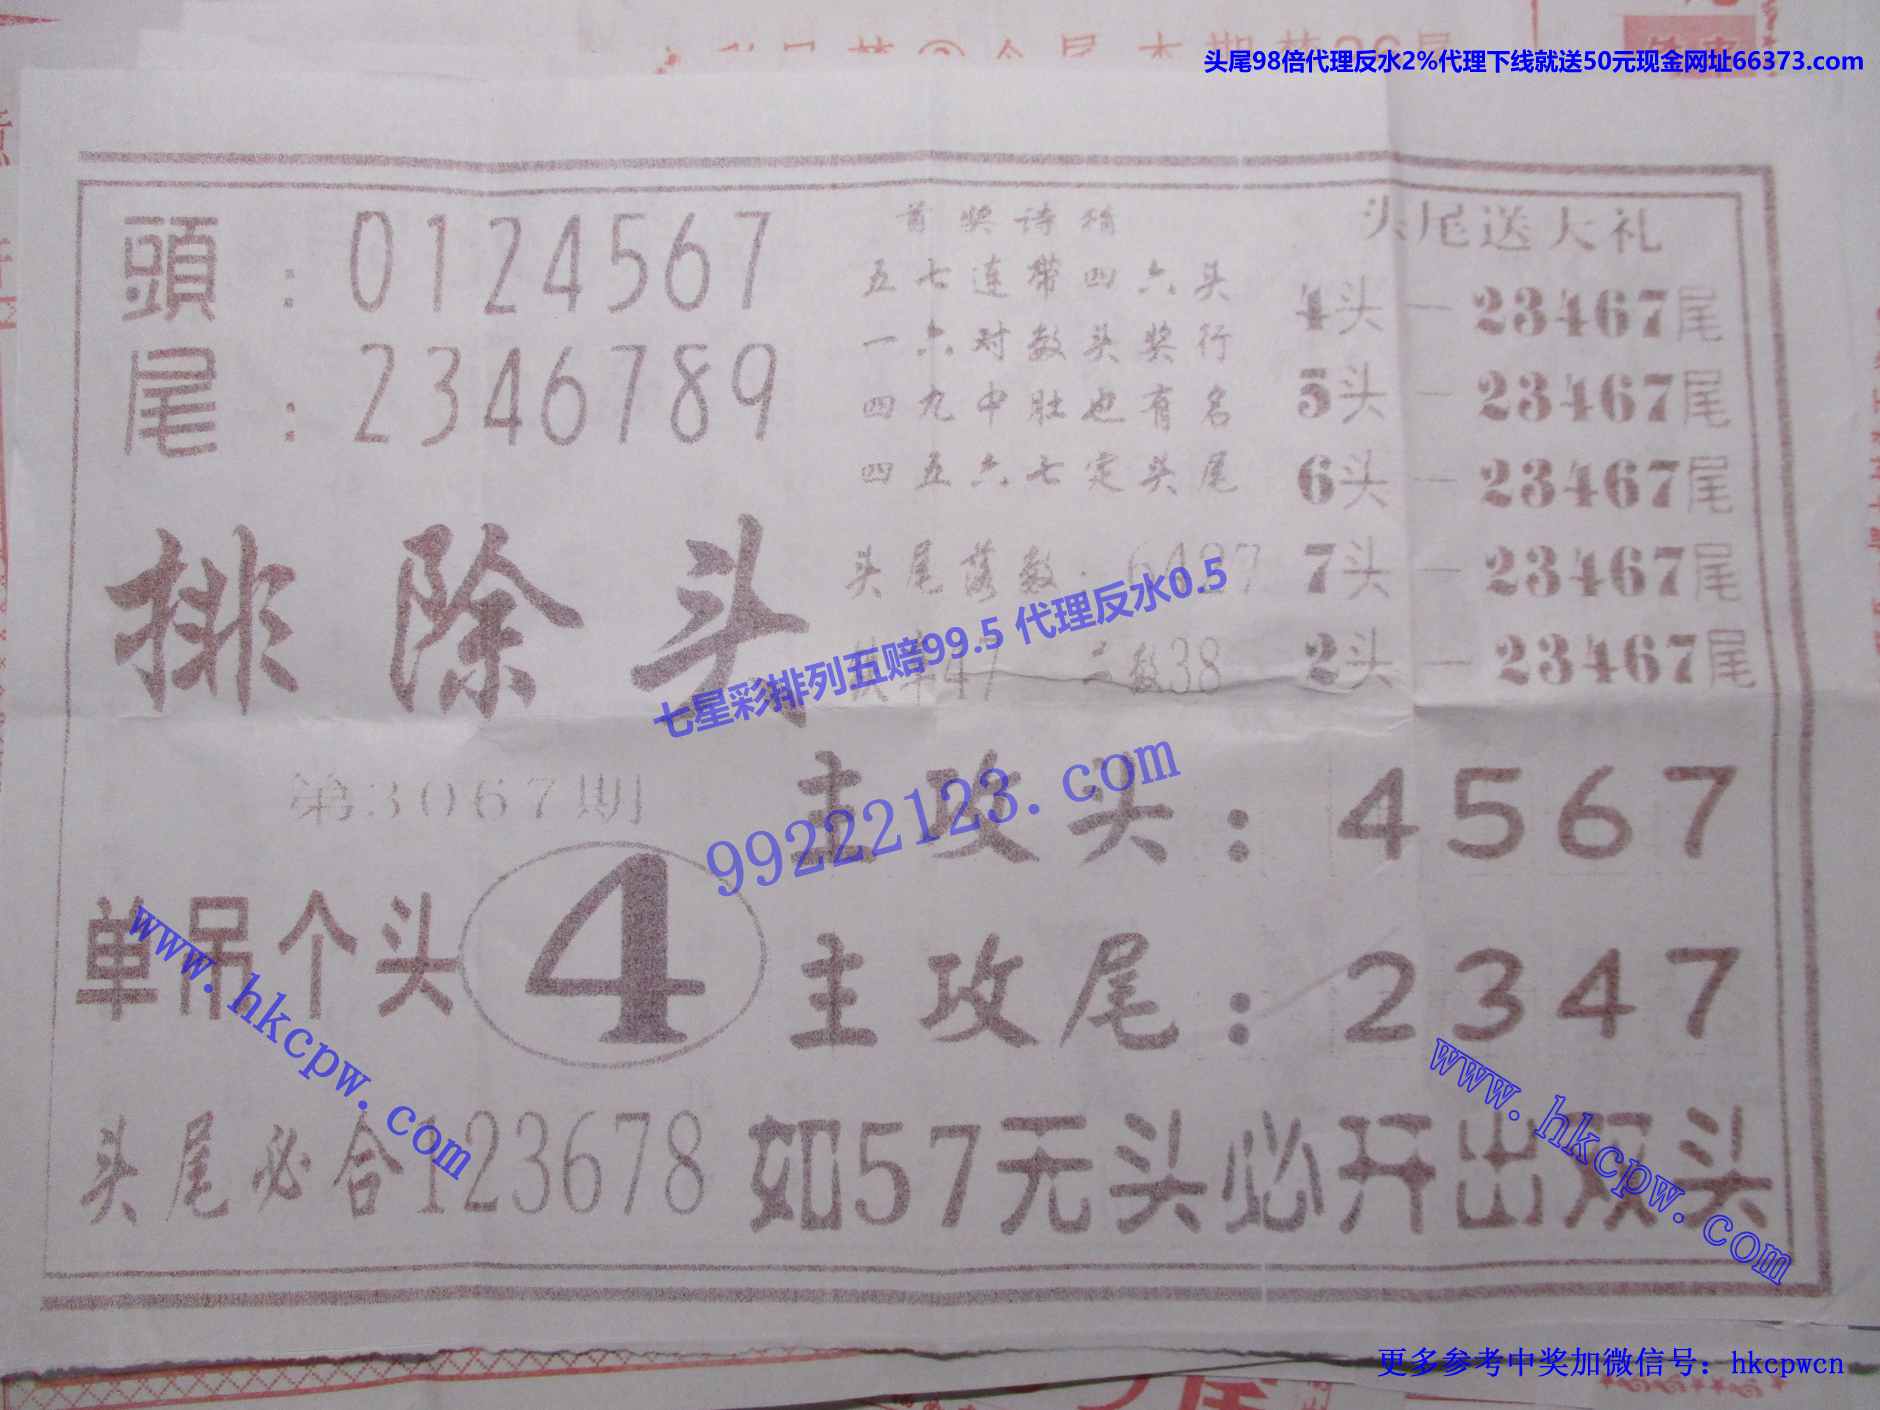 头尾98倍代理反水2%代理下线就送50元现金网址66373.com
頭:0124567
尾:2346789
首奖诗稿
五七连带四六头
一六对数头奖行
四九中肚也有名
四五六七定头尾
头尾落数:6427
47 二数38
头尾送大礼
4头—23467尾
5头—23467尾
6头—23467尾
7头—23467尾
2头—23467尾
排除头
七星彩排列五赔99.5 代理反水0.5
99222123.com
第3067期
主攻头:4567
单吊个头4
主攻尾:2347
www.hkcpw.com
www.hkcpw.com
头尾必合123678
如57无头必开出双头
更多参考中奖加微信号：hkcpwcn